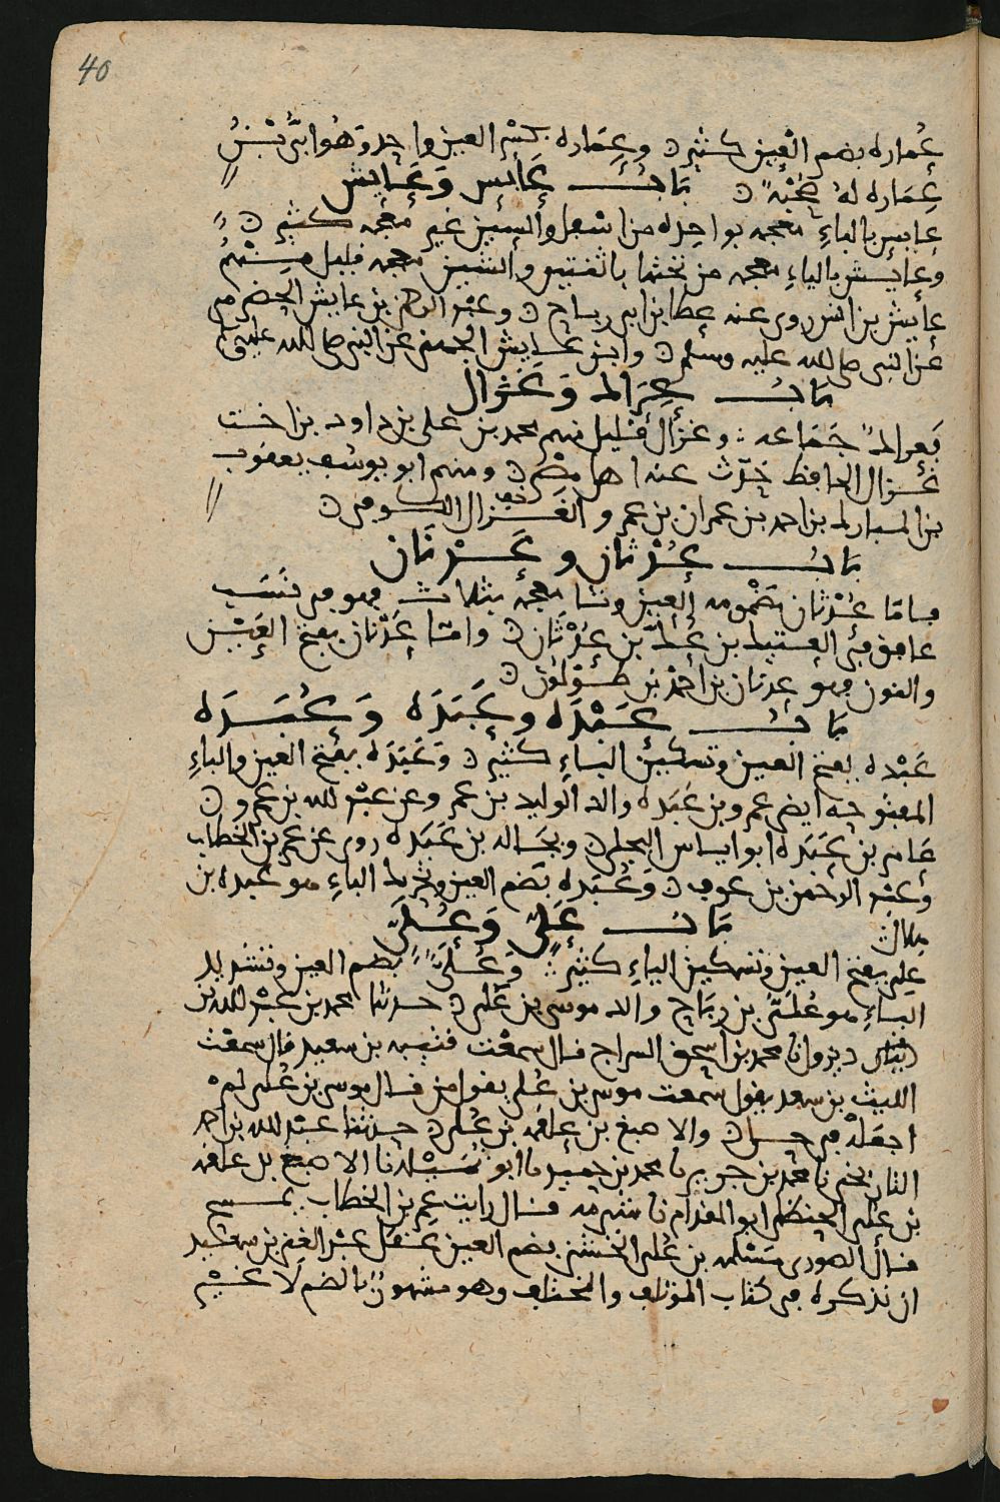 40
عُماره بضم العين كثير وعِمَاره بكسر العين واحد وَهُوَ ابَيّ بْنُ
عِمَاره لهُ صُحْبَه بَابُ عَابِس وَعَايِش
عابس بالباءِ معجمه بواحده من اسْفل والسين غير معجمه كثير
وعايش بالياءِ معجمه من تحتها باثنتين والشين معجمه قليل مِنْهُم
عايش بن انس روى عنه عطا بن ابي رباح وعبد الرحمن بن عايش الحضرمي
عن النبي صلى الله عليه وسلم وابن عايش الجهني عن النبي صلى الله عليه
بَابُ عِرَاك وَغَزَال
فعراك جَمَاعه وغزال قليل منهم محمد بن علي بن داود بن اخت
غزال الحافظ حدّث عنه اهل مصر ومنهم ابو يوسف يعقوب
بن المبارك بن احمد بن عمران بن عمرو الغزال الكوفي
بَابُ عُدْثَان وعَدْنَان
فامّا عُدْثان مَضْمومه العين وثا معجمه بثلاث فهو في نَسَب
غافق في العتيك بن عكّ بن عُدْثان وامّا عَدْنان بفتح العَيْن
والنون فهو عدنان بن احمد بن طولون
بَابُ عَبْدَه وعَبَدَه وَعُبَدَه
عَبْده بفتح العين وتسكين الباءِ كثير وَعَبَدَه بفتح العين والباءِ
المفتوحه ايضا عمرو بن عَبَده والد الوليد بن عمرو وعن عبد الله بن عمرو
عَامر بن عَبَدَه ابو اياس البجلي وبجَاله بن عَبَدَه روى عن عمر بن الخطاب
وعبد الرحمن بن عوف وَعُبَدَه بضم العين وتحريك الباءِ هو عُبده بن
هلال بَابُ عَلِيّ وَعُلَيّ
علي بفتح العين وتسكين الياءِ كثير وَعُلَيّ بضم العين وتشديد
الياءِ هو عُلَيّ بن رباح والد موسى بن عُلي حدثنا محمد بن عبد الله بن
ديزول نا محمد بن اسحق السراج قال سمعت قتيبه بن سعيد قال سمعت
الليث بن سعد يقول سمعت موسى بن عُلي يقول من قال موسى بن عُلي لم
اجعله في حل والاصبغ بن علقمه بن عُلي حدثنا عبد الله بن احمد
نا محمد بن جرير نا محمد بن حميد نا ابو تميله نا الاصبغ بن علقمه
بن عُلي الحنظلي ابو المقدام نا قال رايت عمر بن الخطاب يمسح
قال الصوري مَسْلمه بن عُلي الخشني بضم العين غفل عبد الغني بن سعيد
ان يذكره في كتاب المؤتلف والمختلف وهو مشهورٌ بالضم لا غير